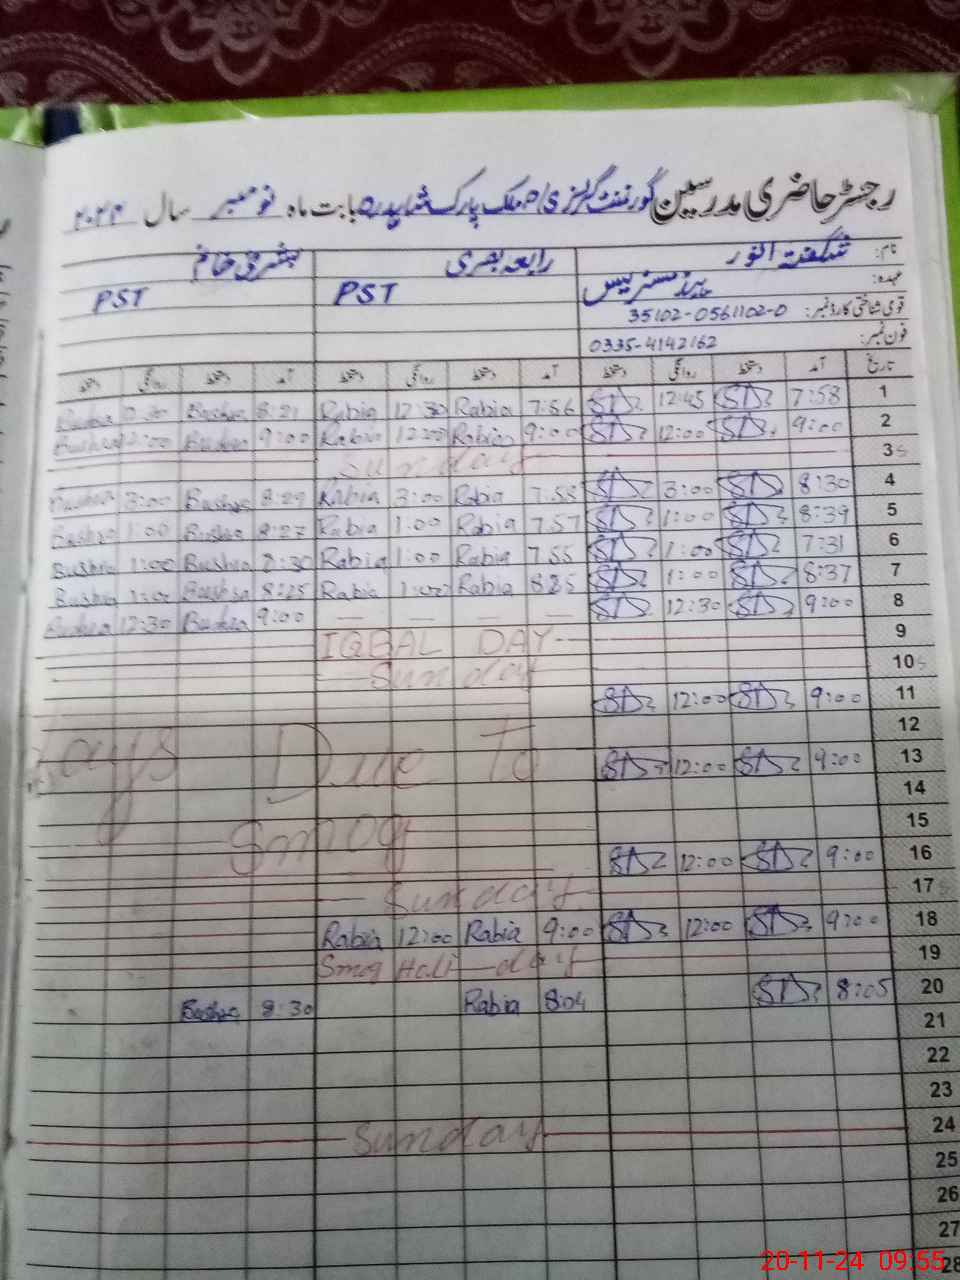 رجسٹر حاضری مدرسین گورنمنٹ گرلز ملک پارک شاہدرہ بابت ماہ نومبر سال ۲۰۲۴
نام: شگفتہ انور رابعہ بصری بشریٰ خانم
عہدہ: ہیڈ مسٹریس PST PST
قومی شناختی کارڈ نمبر: 35102-0561102-0
فون نمبر: 0335-4142162
تاریخ آمد دستخط روانگی دستخط آمد دستخط روانگی دستخط آمد دستخط روانگی دستخط
1 7:58 12:45 7:56 Rabia 12:30 Rabia 8:21 Bushra Bushra
2 9:00 12:00 9:00 Rabia 12:00 Rabia 9:00 Bushra 12:00 Bushra
3 Sunday
4 8:30 3:00 7:58 Rabia 3:00 Rabia 8:29 Bushra 3:00 Bushra
5 8:39 1:00 7:57 Rabia 1:00 Rabia 8:27 Bushra 1:00 Bushra
6 7:31 1:00 7:55 Rabia 1:00 Rabia 8:30 Bushra 1:00 Bushra
7 8:37 1:00 8:25 Rabia 1:00 Rabia 8:25 Bushra 1:00 Bushra
8 9:00 12:30 — — — — 9:00 Bushra 12:30 Bushra
9 IQBAL DAY
10 Sunday
11 9:00 12:00
12
13 9:00 12:00
Days Due To
14
15
Smog
16 9:00 12:00
17 Sunday
18 9:00 12:00 9:00 Rabia 12:00 Rabia
19 Smog Holi day
20 8:05 8:04 Rabia 8:30 Bushra
21
22
23
24 Sunday
25
26
27
28
20-11-24 09:55